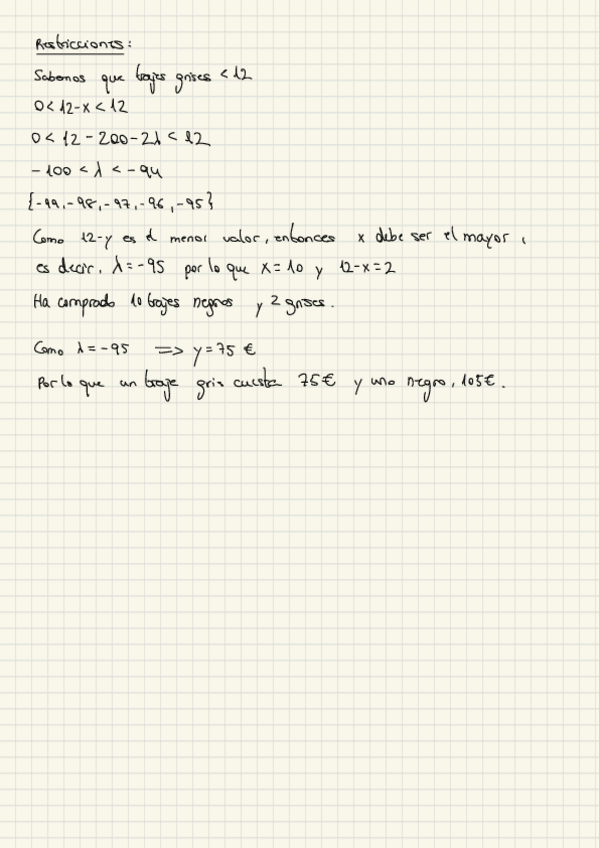 Restricciones:
Sabemos que trajes grises < 12
0 < 12-x < 12
0 < 12 - 200 - 2λ < 12
- 100 < λ < - 94
{-99, -98, -97, -96, -95}
Como 12-y es el menor valor, entonces x debe ser el mayor,
es decir, λ = -95 por lo que x = 10 y 12-x = 2
Ha comprado 10 trajes negros y 2 grises.
Como λ = -95 => y = 75 €
Por lo que un traje gris cuesta 75€ y uno negro, 105€.